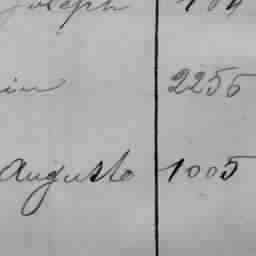 Joseph
in 2256
Auguste 1005